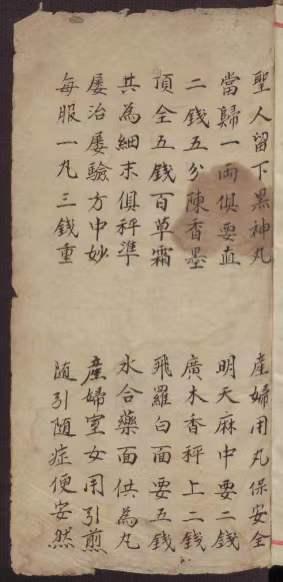 聖人留下黑神丸 產婦用丸保安全
當歸一両俱要血 明天麻中要二錢
二錢五分陳香墨 廣木香秤上二錢
頂全五錢百草霜 飛羅白面要五錢
共為細末俱秤準 水合藥面俱為丸
屡治屡驗方中妙 產婦室女用引煎
每服一丸三錢重 随引随症便安然